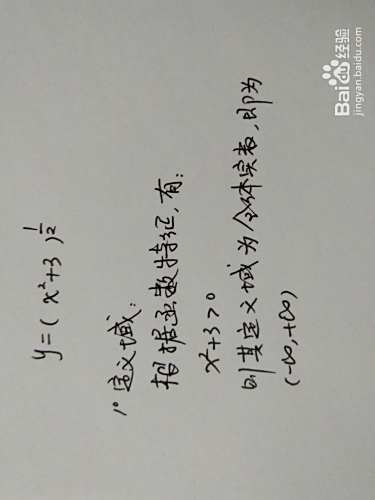 y=(x²+3)^{1/2}
1° 定义域:
根据函数特征,有:
x²+3>0
则其定义域为全体实数,即为
(-∞,+∞)
Baidu经验
jingyan.baidu.com